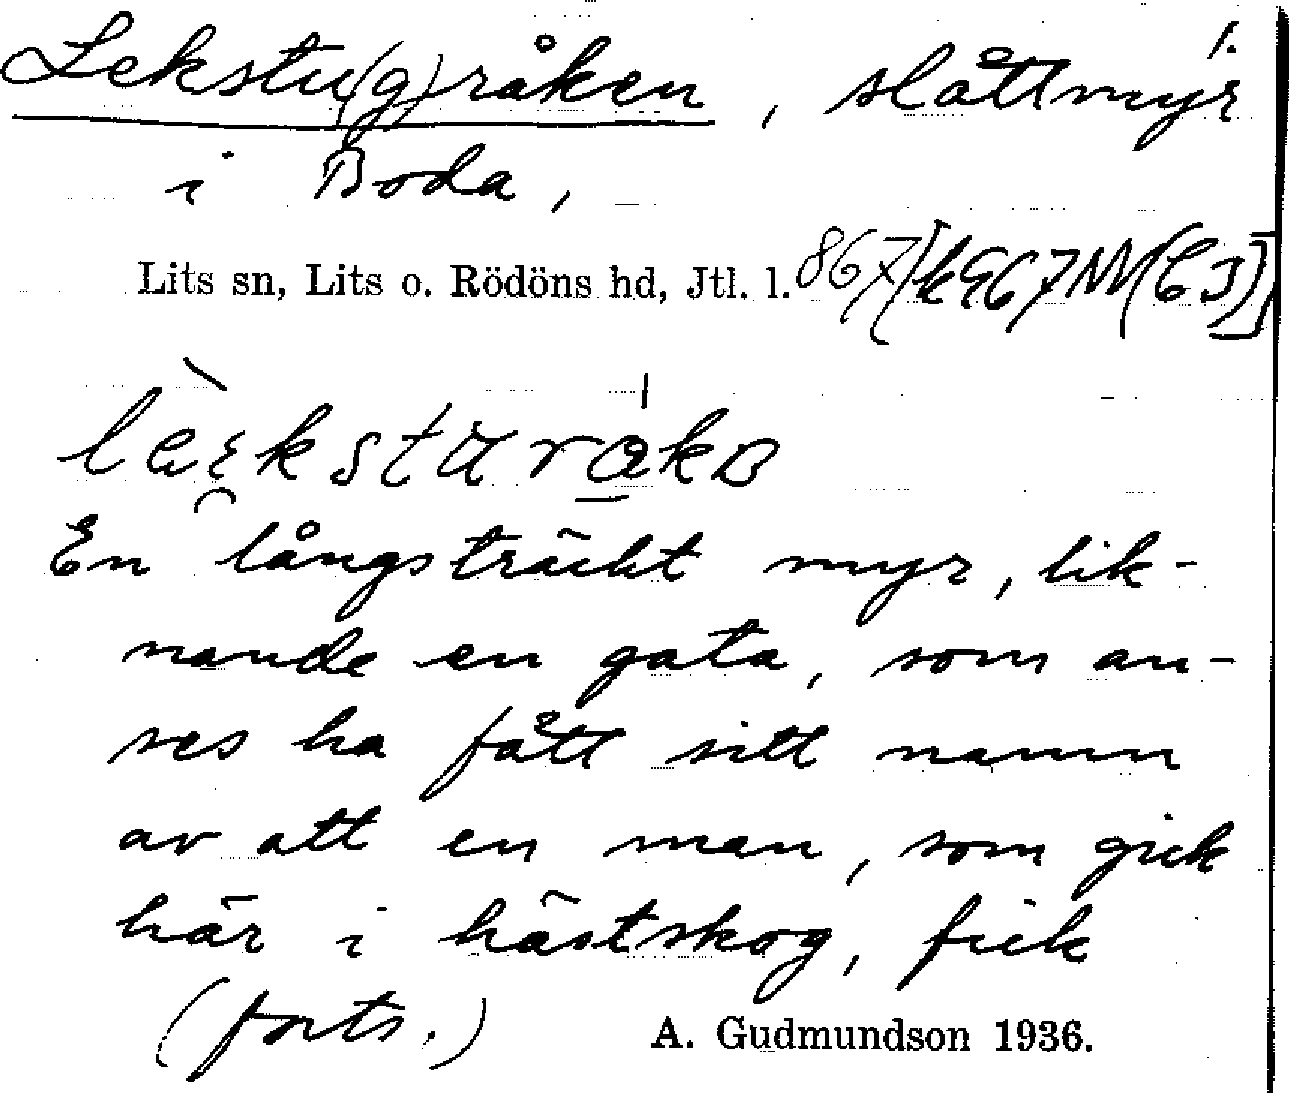 1.
Lekstu(g)råken, slåttmyr
i Boda,
Lits sn, Lits o. Rödöns hd, Jtl. l. 867
En långsträckt myr, lik-
nande en gata, som an-
ses ha fått sitt namn
av att en man, som gick
här i hästskog, fick
(forts.)
A. Gudmundson 1936.